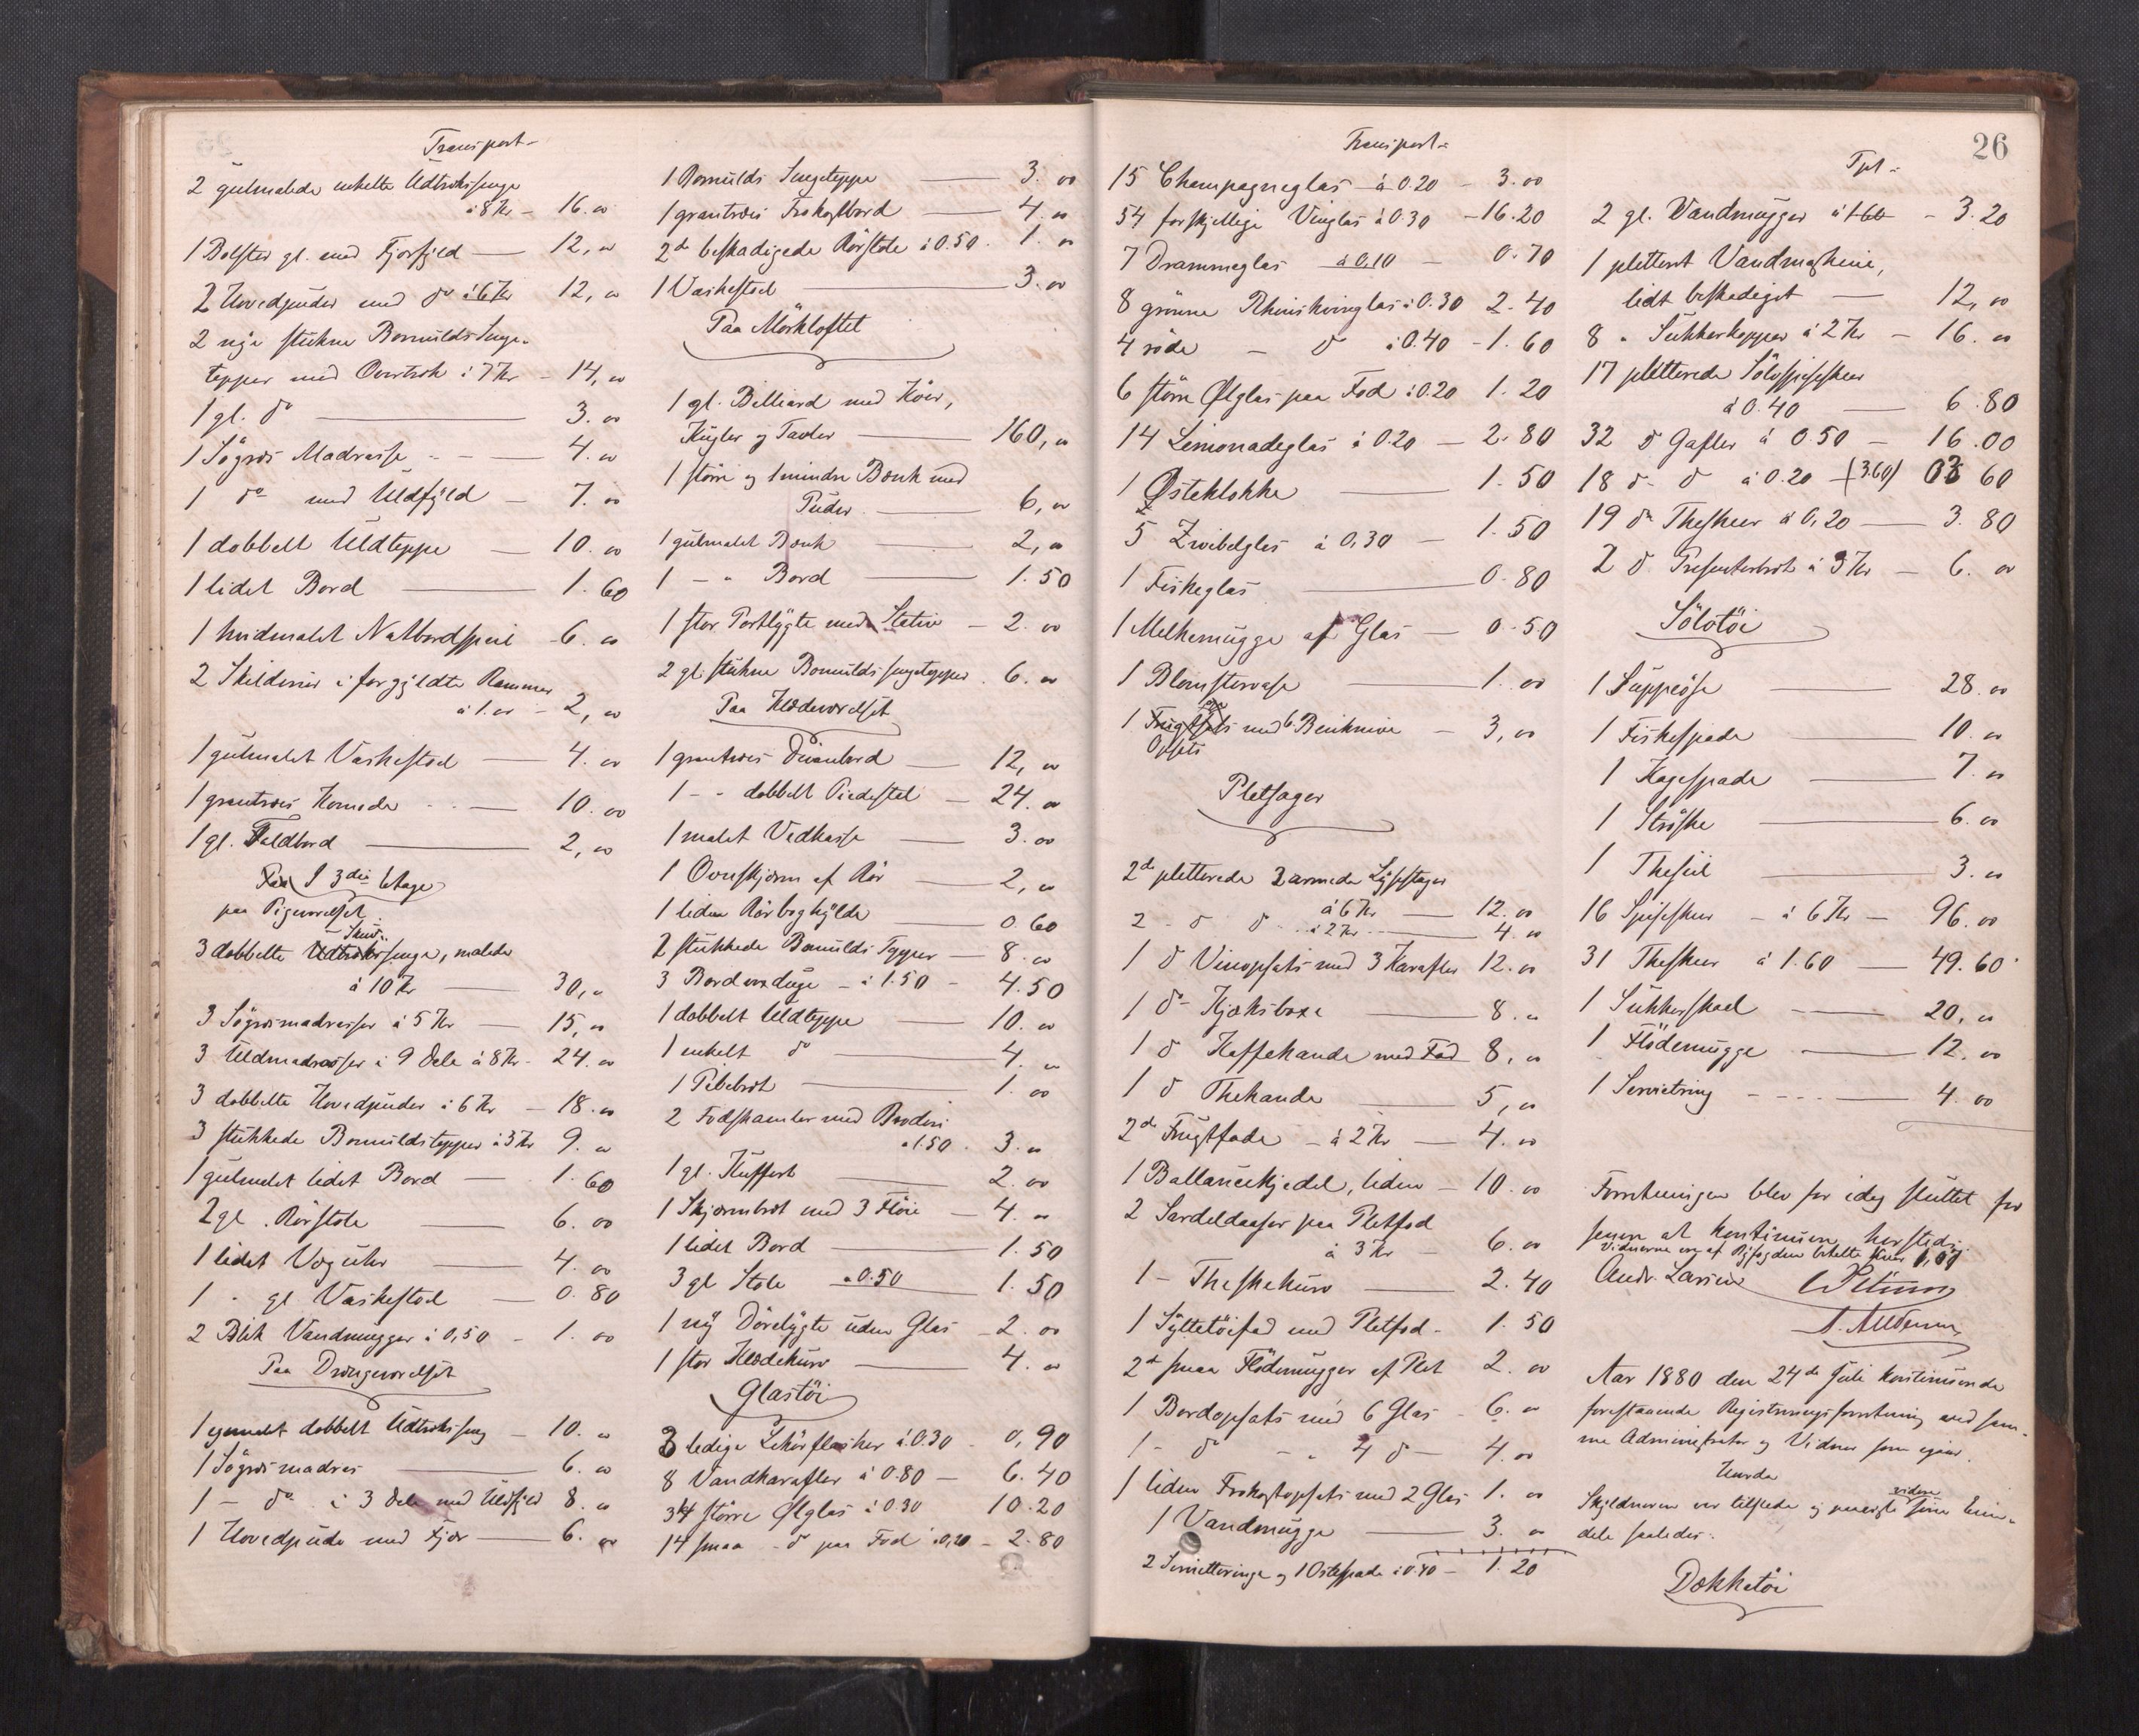 Transport-
2 gulmalede enkelte Udtræksenge
à 8 Kr - 16. 00
1 Bolster gl. med Fjorfyld — 12, 00
2 Hovedpuder med do à 6 Kr 12, 00
2 nye stukne Bomulds Senge-
tepper med Overtræk à 7 Kr - 14, 00
1 gl. do — 3. 00
1 Søgræs Madrasse - - — 4. 00
1 do med Uldfyld — 7. 00
1 dobbelt Uldteppe — 10. 00
1 lidet Bord — 1. 60
1 hvidmalet Natbordspeil - 6. 00
2 Skilderier i forgyldte Rammer
à 1.00 - 2, 00
1 gulmalet Vaskestol — 4. 00
1 grantræs Komode - - — 10. 00
1 gl. Faldbord — 2, 00
Paa I 3die Etage
paa Pigeværelset.
Skuv
3 dobbelte Udtræksenge, malede
à 10 Kr — 30, 00
3 Søgræsmadrasser à 5 Kr — 15, 00
3 Uldmadrasser i 9 Dele à 8 Kr - 24. 00
3 dobbelte Hovedpuder à 6 Kr — 18. 00
3 stukkede Bomuldstepper à 3 Kr 9. 00
1 gulmalet lidet Bord — 1. 60
2 gl. Rørstole — 6. 00
1 lidet Væguhr — 4. 00
1 - gl Vaskestol — 0. 80
2 Blik Vandmugger à 0,50 - 1. 00
Paa Drengeværelset
1 umalet dobbelt Udtræksseng — 10. 00
1 Søgræsmadras — 6. 00
1 - do i 3 Dele med Uldfyld 8. 00
1 Hovedpude med Fjær — 6. 00
1 Bomulds Sengeteppe — 3. 00
1 grantræs Frokostbord — 4. 00
2 do beskadigede Rørstole à 0.50. 1. 00
1 Vaskestol — 3. 00
Paa Mørkloftet
1 gl. Billiard med Køer,
Kugler og Tavler — 160, 00
1 større og 1 mindre Bænk med
Puder — 6, 00
1 gulmalet Bænk — 2, 00
1 - " Bord — 1. 50
1 stor Portlygte med Stativ — 2. 00
2 gl. stukne Bomulds sengetepper. 6. 00
Paa Klædeværelset
1 grantræs Divanbord — 12, 00
1 - - dobbelt Piedestal — 24. 00
1 malet Vedkasse — 3. 00
1 Ovnskjærm af Rør — 2, 00
1 liden Rørboghylde — 0. 60
2 stukkede Bomulds Tepper — 8. 00
3 Bordvoxduge - à 1.50 - 4. 50
1 dobbelt Uldteppe — 10. 00
1 enkelt do — 4. 00
1 Pibebræt — 1. 00
2 Fodskamler med Broderi
à 1.50. 3. 00
1 gl. Kuffert — 2. 00
1 Skjærmbræt med 3 Fløie — 4. 00
1 lidet Bord — 1. 50
3 gl Stole à 0.50 1. 50
1 ny Dørelygte uden Glas - 2. 00
1 stor Klædekurv — 4. 00
Glastøi
3 ledige Likørflasker à 0.30. 0, 90
8 Vandkarafler à 0.80 — 6. 40
34 større Ølglas à 0.30 10. 20
14 smaa - do paa Fod à 0,20 - 2. 80
Transport-
15 Champagneglas - à 0.20 - 3. 00
54 forskjellige Vinglas à 0.30 - 16. 20
7 Drammeglas à 0,10 — 0. 70
8 grønne Rhinskvinglas à 0.30 2. 40
4 røde - do à 0.40 - 1. 60
6 større Ølglas paa Fod à 0.20 1. 20
14 Limonadeglas à 0.20 — 2. 80
1 Osteklokke — 1. 50
5 Zwibelglas à 0,30 — 1. 50
1 Fiskeglas — 0. 80
1 Melkemugge af Glas — 0. 50
1 Blomstervase — 1. 00
1 Frugtsats med 6 Benknive — 3, 00
Opsats
Pletsager
2 do pletterede 3 armede Lysestager
à 6 Kr — 12. 00
2 - do do - à 2 Kr — 4. 00
1 do Vinopsats med 3 Karafler 12. 00
1 do Kjæksboxe — 8. 00
1 do Kaffekande med Fad 8, 00
1 do Thekande — 5, 00
2 do Frugtfade - à 2 Kr — 4. 00
1 Ballancekjedel, liden — 10. 00
2 Sardeldaaser paa Pletfod
à 3 Kr — 6. 00
1 - Theskekurv — 2. 40
1 Syltetøifad med Pletfod - 1. 50
2 do smaa Flødemugger af Plet 2. 00
1 Bordopsats med 6 Glas - 6. 00
1 - do - - 4 do — 4. 00
1 liden Frokostopsats med 2 Glas 1. 00
1 Vandmugge — 3. 00
2 Servietteringe og 1 Ostespade à 0.40 — 1. 20
26
Tpt -
2 gl. Vandmugger à 1.60 - 3. 20
1 pletteret Vandmaskine,
lidt beskadiget — 12, 00
8 " Sukkerkopper à 2 Kr — 16. 00
17 pletterede Sølvspiseskeer
à 0.40 — 6. 80
32 do Gafler à 0.50 — 16. 00
18 do - do à 0.20 - (3.60) 03 60
19 do Theskeer à 0,20 — 3. 80
2 do Presenterbræt à 3 Kr — 6. 00
Sölvtöi
1 Suppeøse — 28. 00
1 Fiskespade — 10. 00
1 Kagespade — 7. 00
1 Strøske — 6. 00
1 Thesiil — 3. 00
16 Spiseskeer - à 6 Kr — 96. 00
31 Theskeer à 1.60 — 49. 60
1 Sukkerskaal — 20, 00
1 Flødemugge — 12. 00
1 Servietring - - - — 4. 00
Forretningen blev for idag sluttet for
senere at kontinuere hersteds.
Vidnerne
Andr. Larsen
Aar 1880 den 24de Juli kontinuerede
forestaaende Registreringsforretning ved sam-
me Administrator og Vidner som igaar.
Hvorda
videre
Skyldneren var tilstede og paaviste sine Eien-
dele saaledes:
Dækketöi